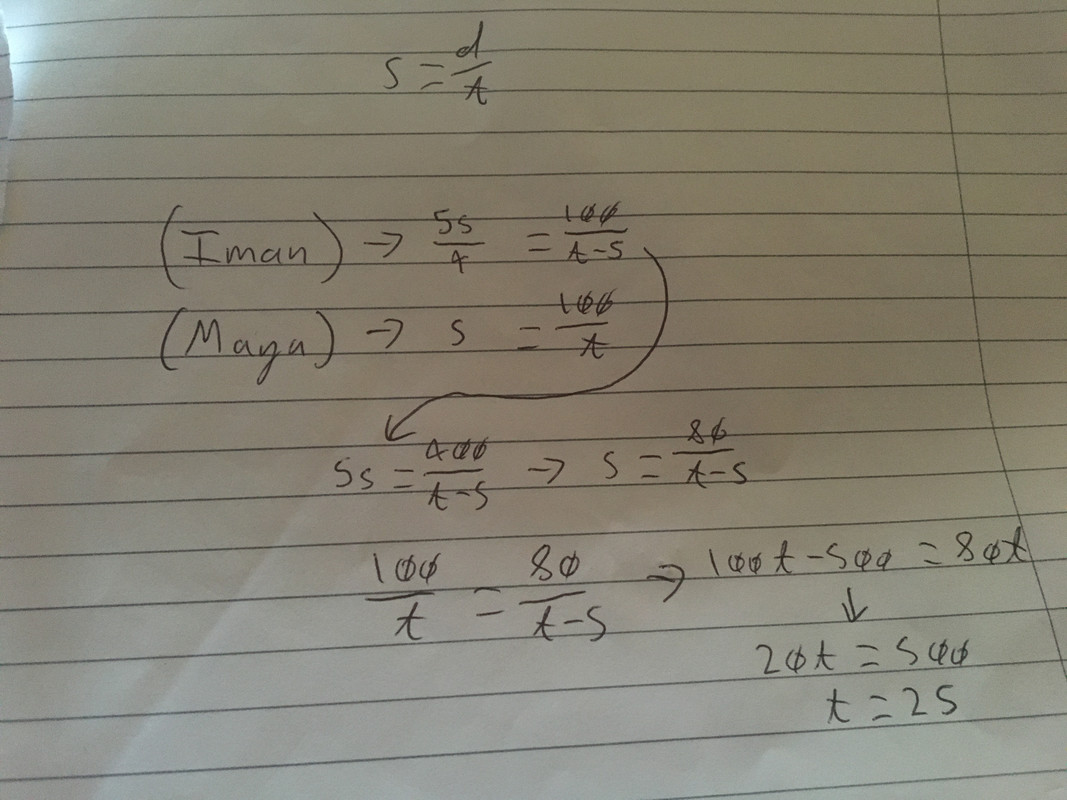 s = d/t
(Iman) → 5s/4 = 100/(t-5)
(Maya) → s = 100/t
5s = 400/(t-5) → s = 80/(t-5)
100/t = 80/(t-5) → 100t - 500 = 80t
↓
20t = 500
t = 25